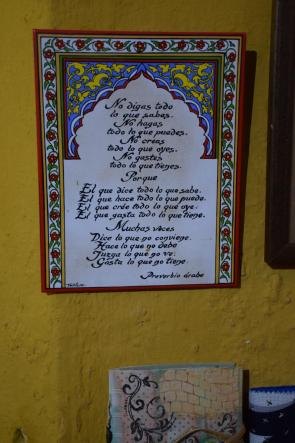 No digas todo
lo que sabes.
No hagas
todo lo que puedes.
No creas
todo lo que oyes.
No gastes
todo lo que tienes.
Porque
El que dice todo lo que sabe.
El que hace todo lo que puede.
El que crée todo lo que oye.
El que gasta todo lo que tiene.
Muchas veces
Dice lo que no conviene.
Hace lo que no debe
Juzga lo que no ve.
Gasta lo que no tiene.
Proverbio árabe